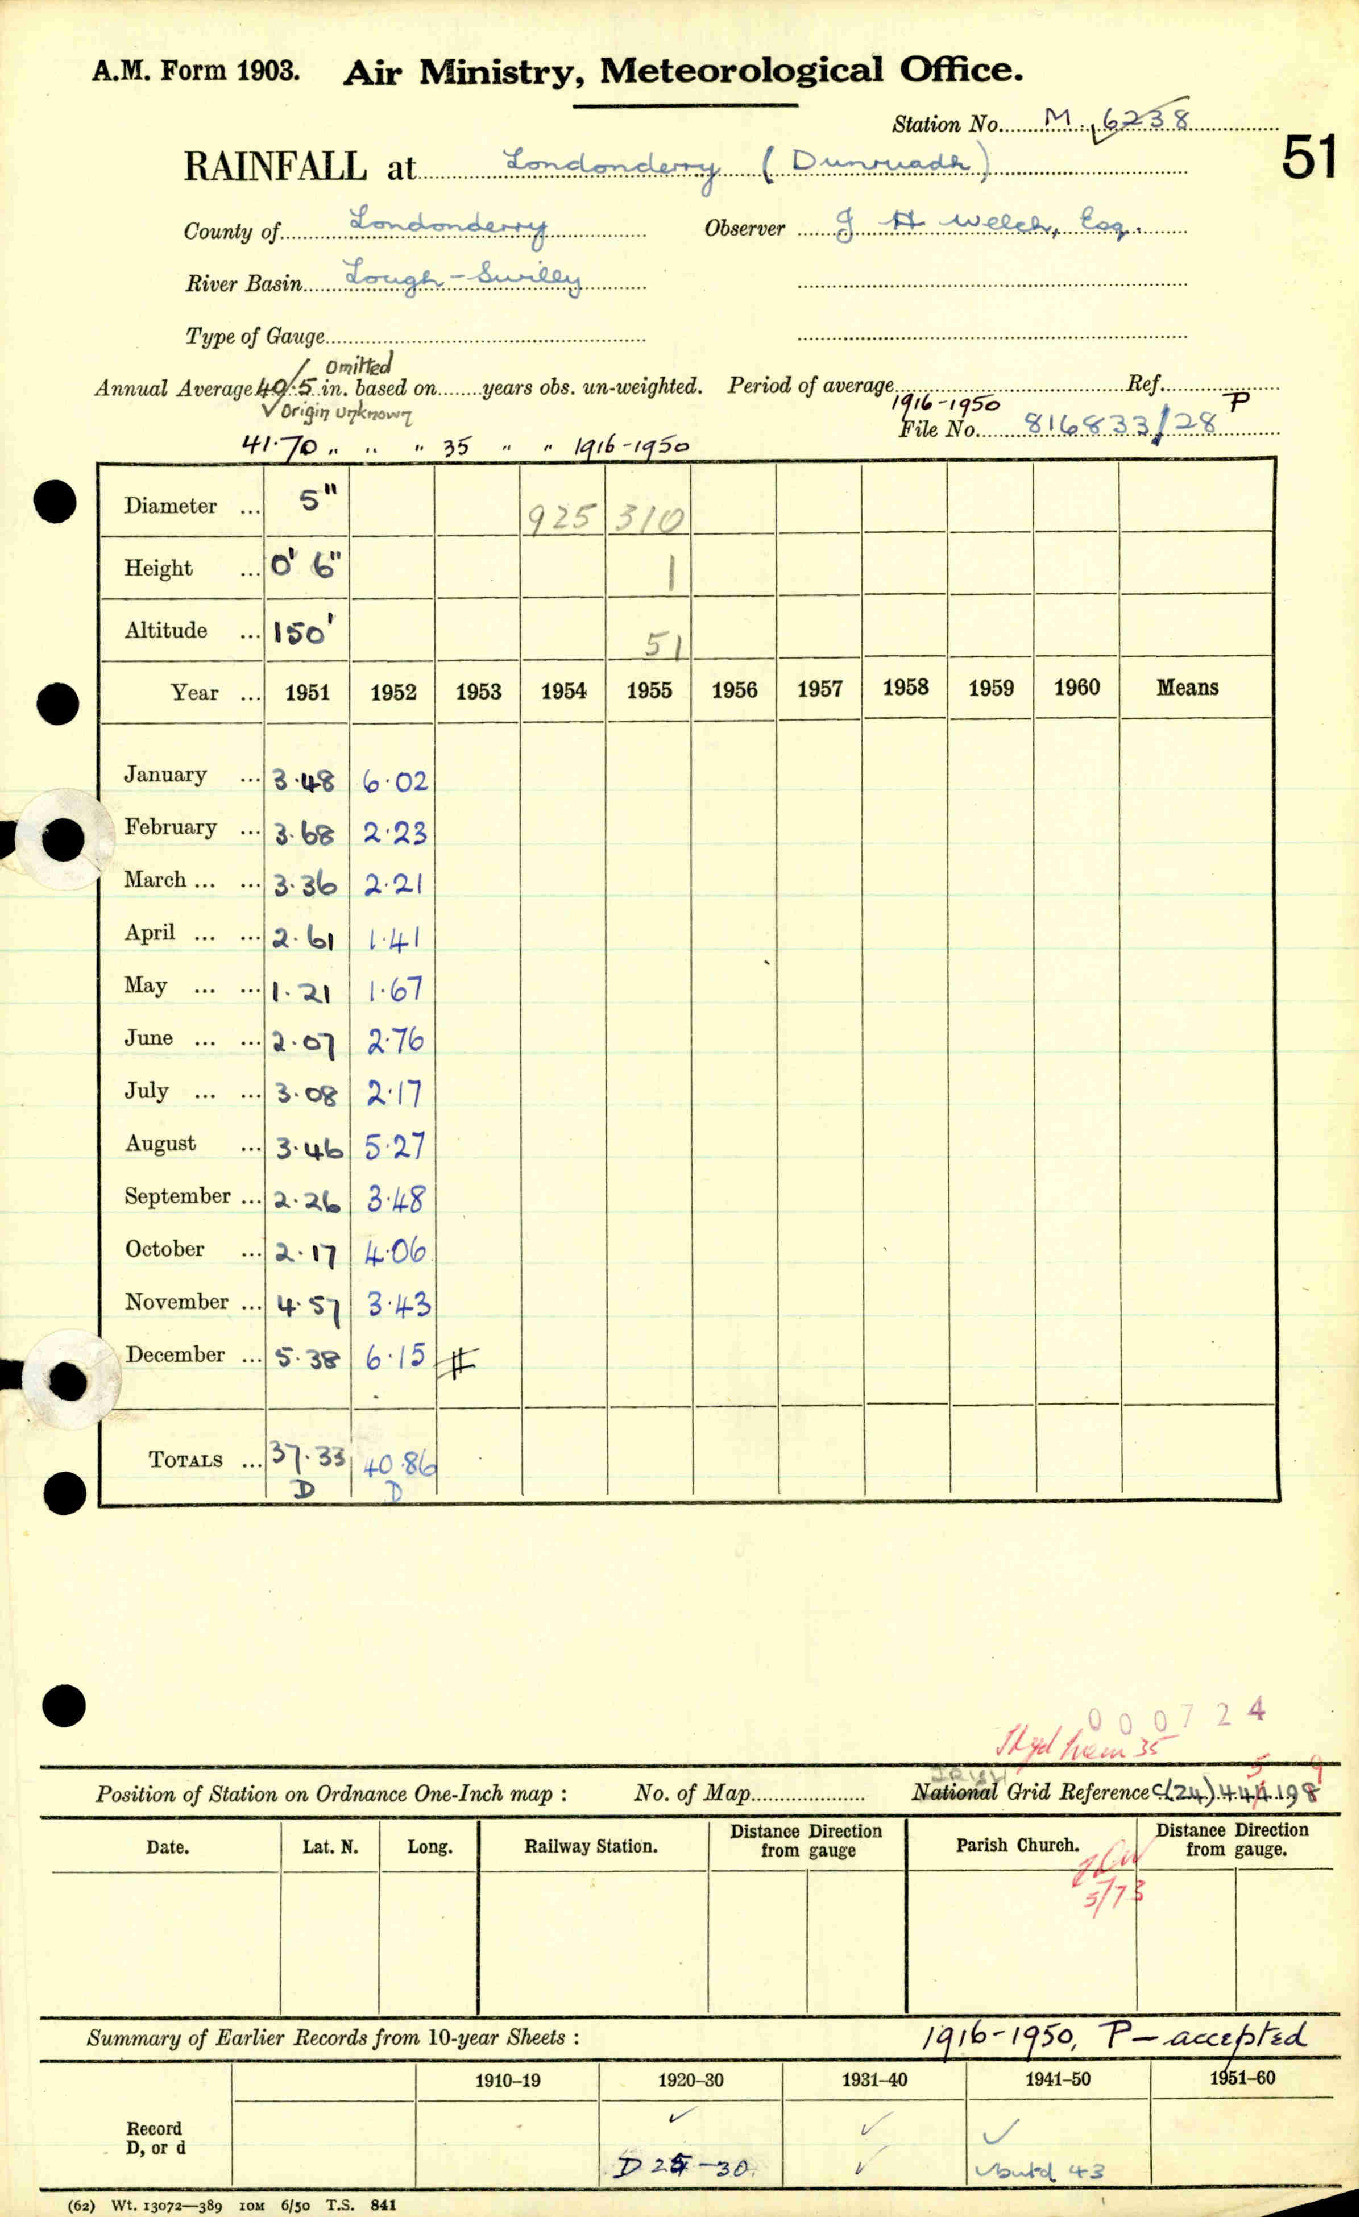 A.M. Form 1903. Air Ministry, Meteorological Office.
Station No. M. 6238
51
RAINFALL at Londonderry (Dunruadh)
County of Londonderry Observer J H Welch, Esq.
River Basin Lough-Swilly
Type of Gauge
omitted
Annual Average 40.5 in. based on years obs. un-weighted. Period of average Ref.
✓ Origin unknown 1916-1950 P
File No. 816833/28
41.70 " " " 35 " " 1916-1950
Diameter ... 5" 925 310
Height ... 0' 6" 1
Altitude ... 150' 51
Year ... 1951 1952 1953 1954 1955 1956 1957 1958 1959 1960 Means
January ... 3.48 6.02
February ... 3.68 2.23
March ... ... 3.36 2.21
April ... ... 2.61 1.41
May ... ... 1.21 1.67
June ... ... 2.07 2.76
July ... ... 3.08 2.17
August ... 3.46 5.27
September ... 2.26 3.48
October ... 2.17 4.06
November ... 4.57 3.43
December ... 5.38 6.15 #
TOTALS ... 37.33 40.86
D D
000724
35
5 9
IRISH
Position of Station on Ordnance One-Inch map : No. of Map National Grid Reference C(24) 444 198
Date. Lat. N. Long. Railway Station. Distance from Direction gauge Parish Church. Distance from Direction gauge.
5/73
Summary of Earlier Records from 10-year Sheets : 1916-1950, P - accepted
1910–19 1920–30 1931–40 1941–50 1951–60
Record ✓ ✓ ✓
D, or d D 25-30 ✓ ✓ but d 43
(62) Wt. 13072—389 10M 6/50 T.S. 841